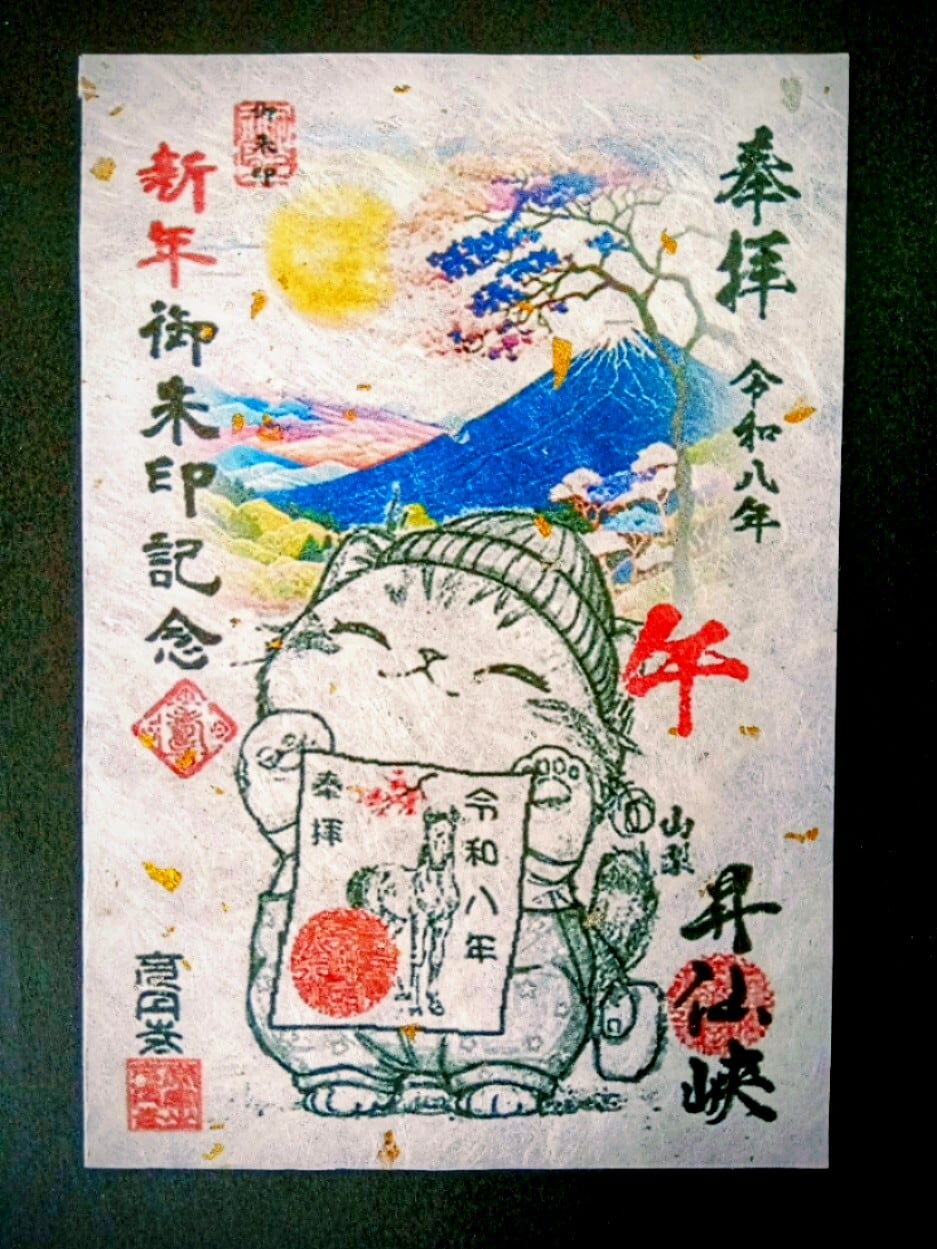 奉拝
令和八年
午
山梨
昇仙峡
令和八年
奉拝
御朱印
新年御朱印記念